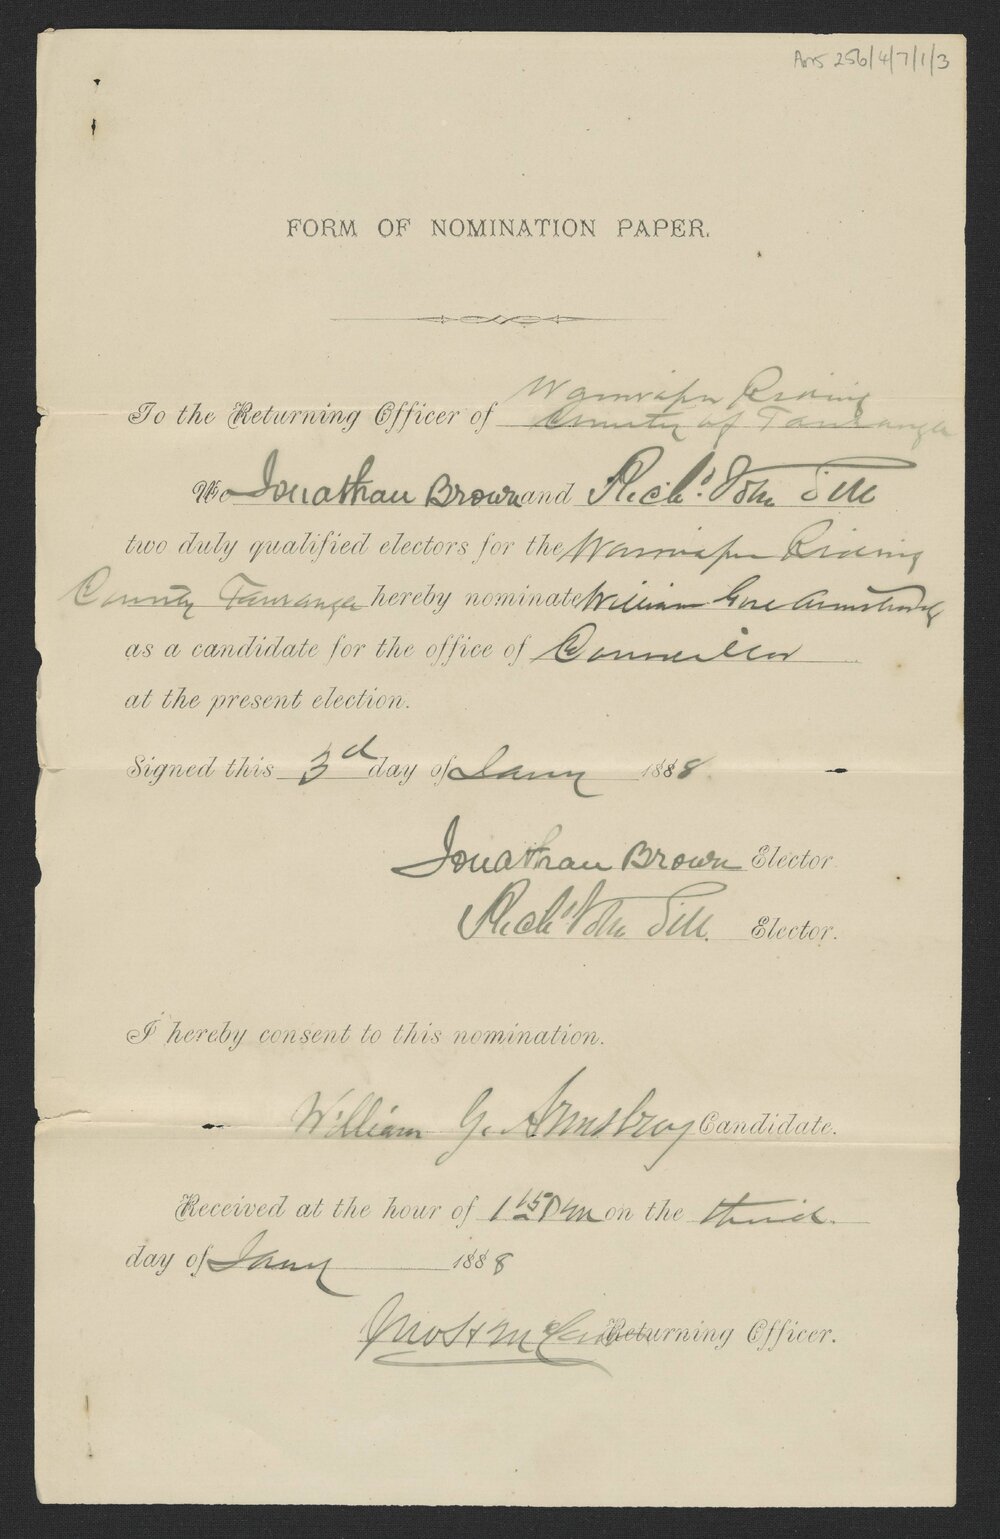 Ams 256/4/7/1/3
FORM OF NOMINATION PAPER.
Waimapu Riding
To the Returning Officer of County of Tauranga
We Jonathan Brown and Richd. John Sill
two duly qualified electors for the Waimapu Riding
County Tauranga hereby nominate William Gore Armstrong
as a candidate for the office of Councillor
at the present election.
Signed this 3rd day of Jany 1888.
Jonathan Brown Elector
Richd John Sill. Elector.
I hereby consent to this nomination.
William G. Armstrong Candidate.
Received at the hour of 1 15 Pm on the third.
day of Jany 1888
Returning Officer.